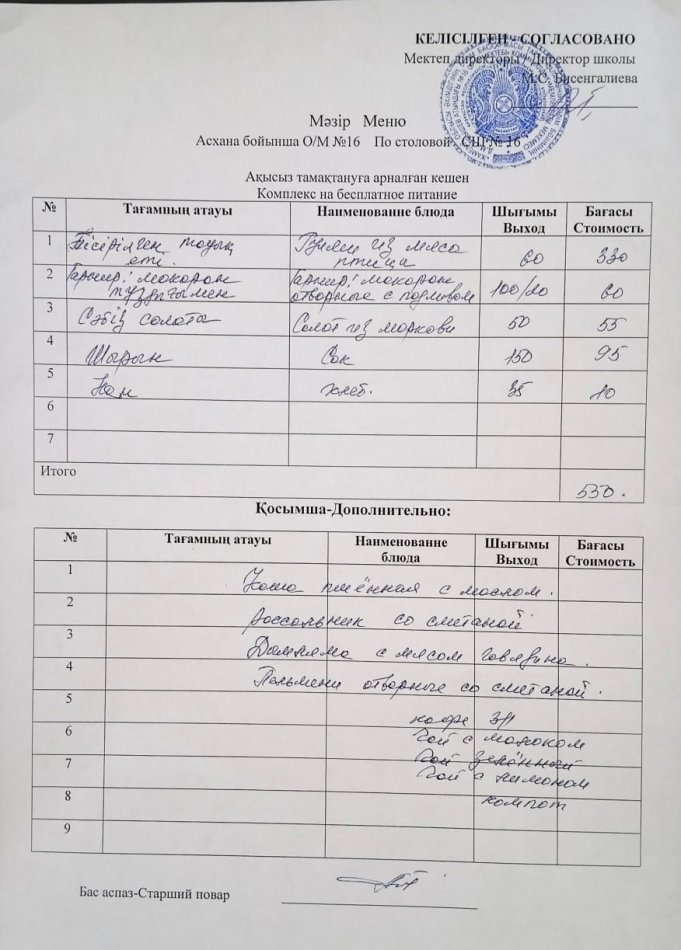 КЕЛІСІЛГЕН - СОГЛАСОВАНО
Мектеп директоры / Директор школы
М.С. Бисенгалиева
Мәзір Меню
Асхана бойынша О/М №16 По столовой СШ № 16
Ақысыз тамақтануға арналған кешен
Комплекс на бесплатное питание
№ Тағамның атауы Наименование блюда Шығымы Выход Бағасы Стоимость
1 Пісірілген тауық еті. из мяса птицы 60 330
2 Гарнир: макарон тұздығымен Гарнир: макарон отворные с подливом 100/20 60
3 Сәбіз салаты Салат из моркови 50 55
4 Шырын Сок 150 95
5 Нан хлеб. 35 10
6
7
Итого 550.
Қосымша-Дополнительно:
№ Тағамның атауы Наименование блюда Шығымы Выход Бағасы Стоимость
1 Каша пшённая с маслом.
2 Рассольник со сметаной
3 Дамляма с мясом говядина.
4 Пельмени отворные со сметаной.
5 кофе 3/1
6 Чай с молоком
Чай зелённый
7 Чай с лимоном
8 компот
9
Бас аспаз-Старший повар